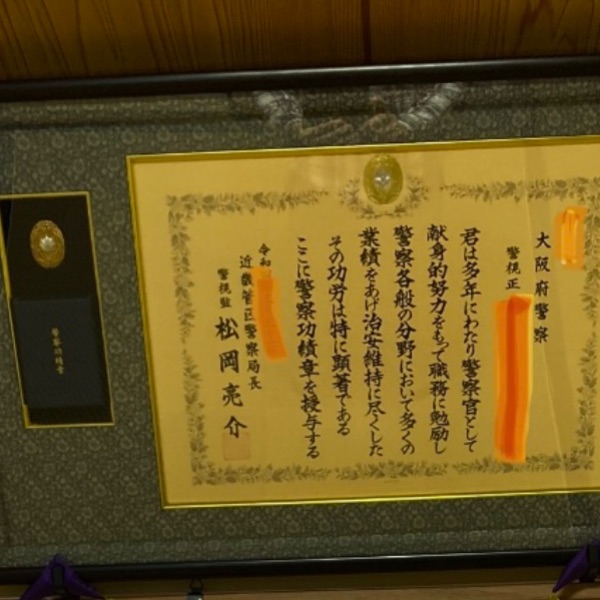 大阪府警察
警視正
君は多年にわたり警察官として
献身的努力をもって職務に勉励し
警察各般の分野において多くの
業績をあげ治安維持に尽くした
その功労は特に顕著である
ここに警察功績章を授与する
令和
近畿管区警察局長
警視監 松岡亮介
警察功績章